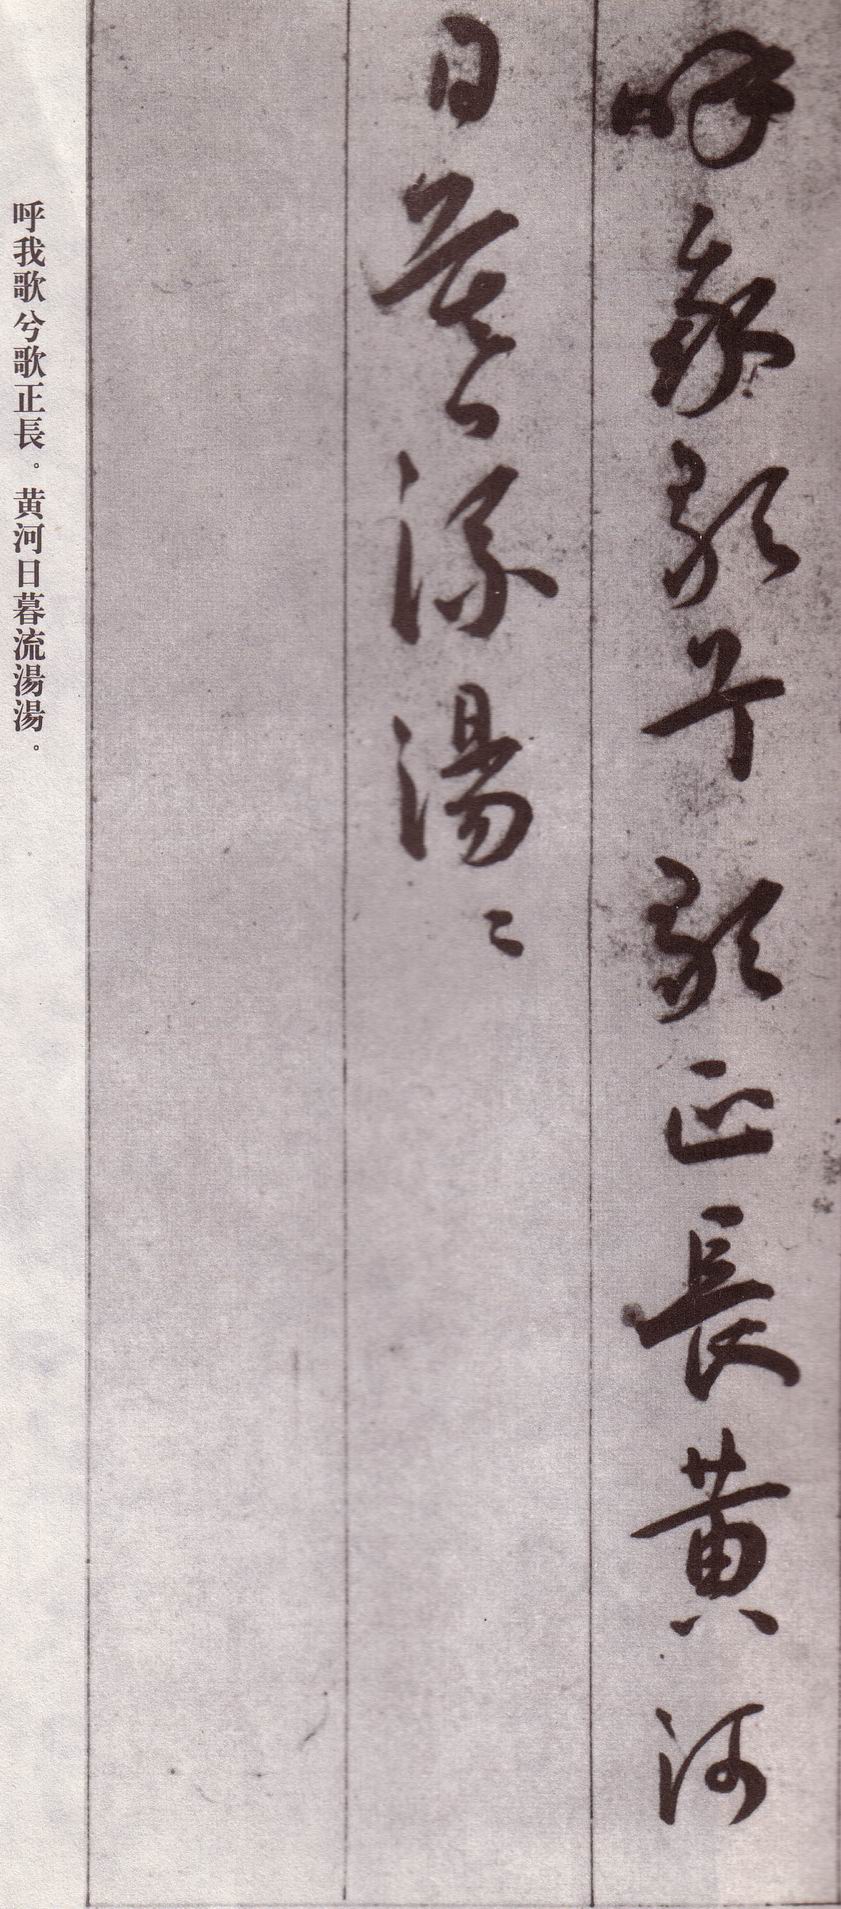 呼我歌兮歌正長黄河
日暮流湯〻
呼我歌兮歌正長。黄河日暮流湯湯。